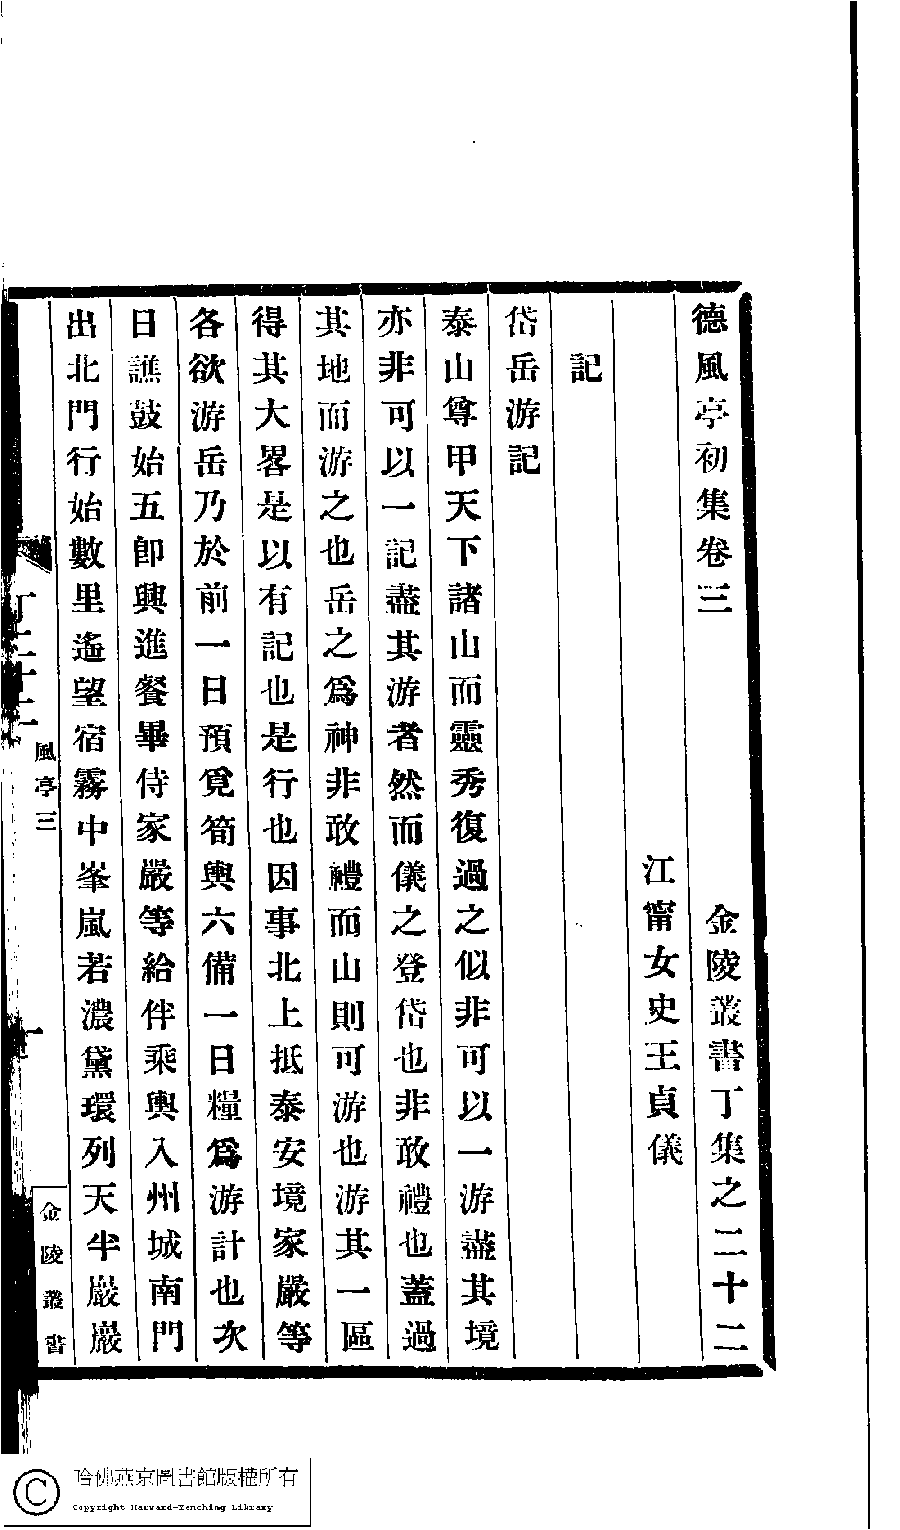 德風亭初集卷三　金陵叢書丁集之二十二
江甯女史王貞儀
記
岱岳游記
泰山尊甲天下諸山而靈秀復過之似非可以一游盡其境
亦非可以一記盡其游者然而儀之登岱也非敢禮也蓋過
其地而游之也岳之爲神非敢禮而山則可游也游其一區
得其大畧是以有記也是行也因事北上抵泰安境家嚴等
各欲游岳乃於前一日預覓筍輿六備一日糧爲游計也次
日譙鼓始五卽興進餐畢侍家嚴等給伴乘輿入州城南門
出北門行始數里遙望宿霧中峯嵐若濃黛環列天半巖巖
丁二十二
風亭三
一
金陵叢書
哈佛燕京圖書館版權所有
Copyright Harvard-Yenching Library